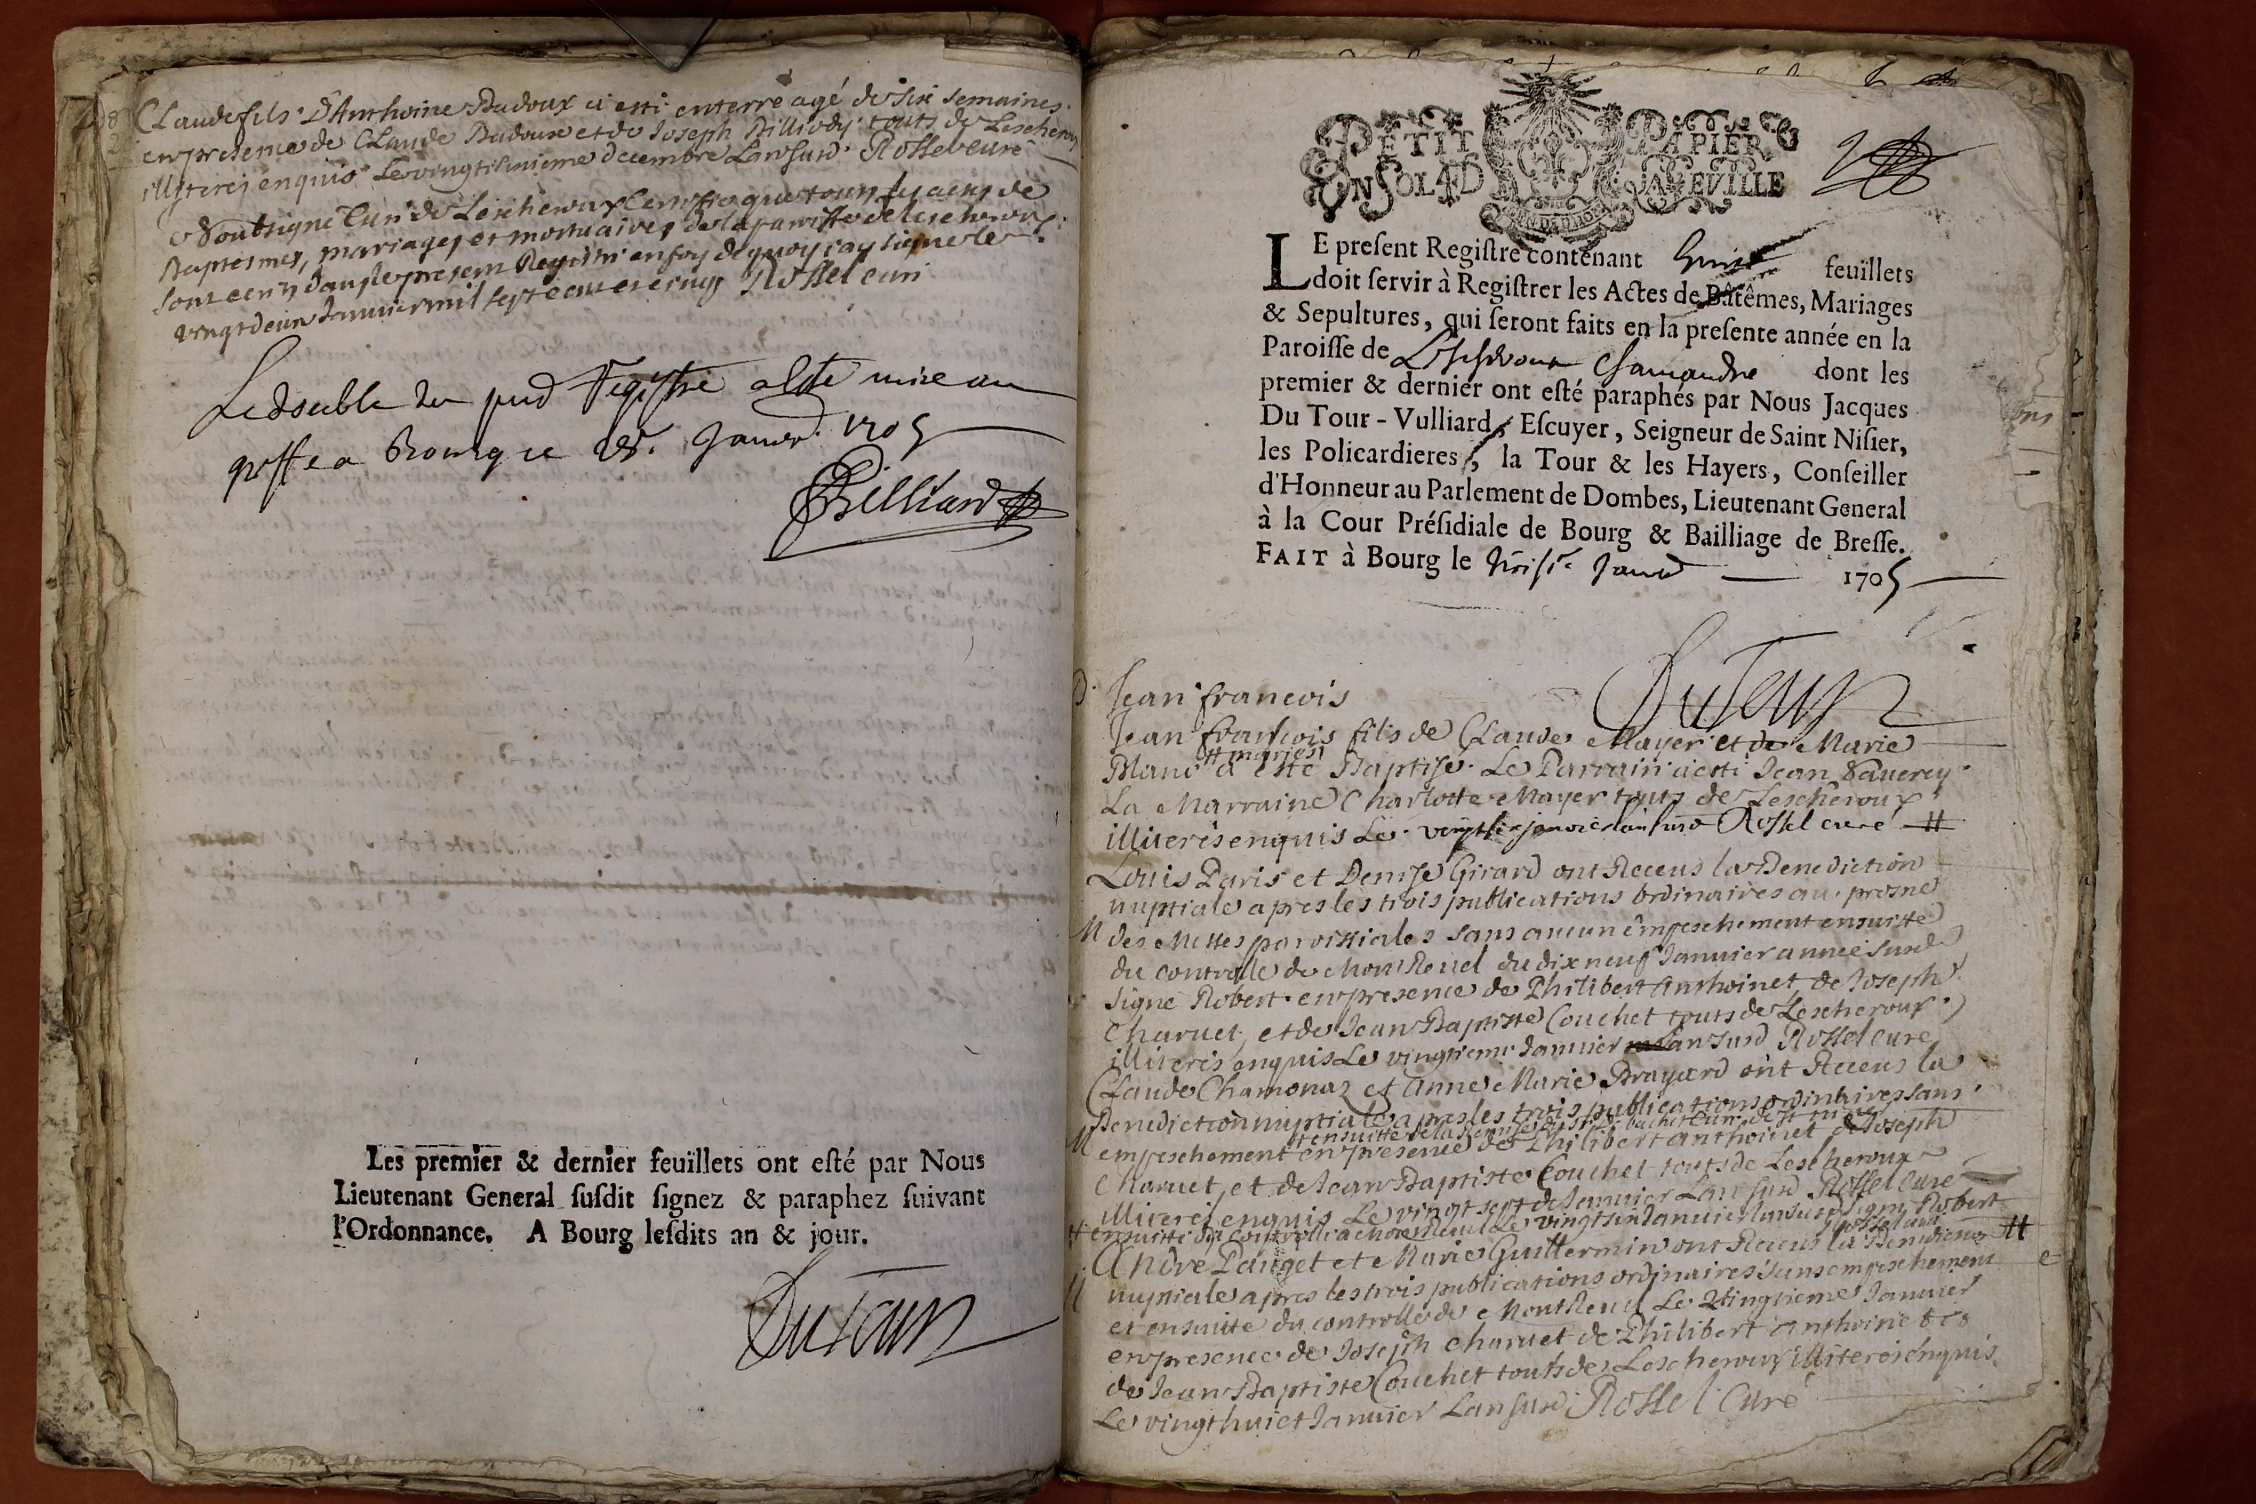 Claude fils D'Anthoine Badoux a esté enterré agé de six semaines
en presence de Claude Badoux et de Joseph Billiody touts de Lescheroux
illiterez enquis Le vingtsixieme decembre Lan susd. Rossel curé
Soubsigné Curé de Lescheroux Certiffie que touts les actes de
Baptesmes, mariages et mortuaires de la parroisse de Lescheroux
sont ecrits dans le present Registre en foy de quoy j'ay signé le
vingtdeux Janvier mil sept cent et cinq Rossel curé
Le double du pnt Registre a esté mis au
greffe a Bourg ce 28. Janvr. 1705
Billiard
Les premier & dernier feuillets ont esté par Nous
Lieutenant General susdit signez & paraphez suivant
l'Ordonnance. A Bourg lesdits an & jour.
DuTour
PETIT PAPIER
UN SOL 4 D LA FEVILLE
LE present Registre contenant huict feuillets
doit servir à Registrer les Actes de Bâtêmes, Mariages
& Sepultures, qui seront faits en la presente année en la
Paroisse de Lescheroux Chamandre dont les
premier & dernier ont esté paraphés par Nous Jacques
Du Tour-Vulliard, Escuyer, Seigneur de Saint Nisier,
les Policardieres, la Tour & les Hayers, Conseiller
d'Honneur au Parlement de Dombes, Lieutenant General
à la Cour Présidiale de Bourg & Bailliage de Bresse.
FAIT à Bourg le troise Janvr 1705
DuTour
Jean francois
Jean francois fils de Claude Mayer et de Marie
# mariés
Blanc a esté Baptisé. Le Parrain a esté Jean Sauerey
La Marraine Charlotte Mayer touts de Lescheroux
illiterés enquis Le vingtsix janvier lan susd Rossel curé #
Louis Paris et Denise Girard ont Receus la Benediction
nuptiale apres les trois publications ordinaires au prosne
M des Messes paroissiales sans aucun empeschement ensuitte
du controlle de Mont Revel du dixneuf Janvier année susd
signé Robert en presence de Philibert Anthoinet, de Joseph
Charuet, et de Jean Baptiste Couchet touts de Lescheroux
illiterés enquis Le vingtieme Janvier Lan susd Rossel Curé
Claude Chamonaz et Anne Marie Brayard ont Receus la
Benediction nuptiale apres les trois publications ordinaires sans
# ensuitte de la Remise du Sr
M empeschement en presence de Philibert Anthoinet de Joseph
Charuet, et de Jean Baptiste Couchet touts de Lescheroux
illiterez enquis Le vingt sept de Janvier Lan susd Rossel Curé
# ensuitte du controlle a Mont Revel Le vingtsix Janvier lan susd signé Robert
Rossel curé #
André Pauget et Marie Guillermin ont Receus la Benediction
M nuptiale apres les trois publications ordinaires sans empeschement
et ensuitte du controlle de Mont Revel Le vingtieme Janvier
en presence de Joseph Charuet de Philibert Anthoine et
de Jean Baptiste Couchet touts de Lescheroux illiterés enquis
Le vingthuict Janvier Lan susd Rossel Curé